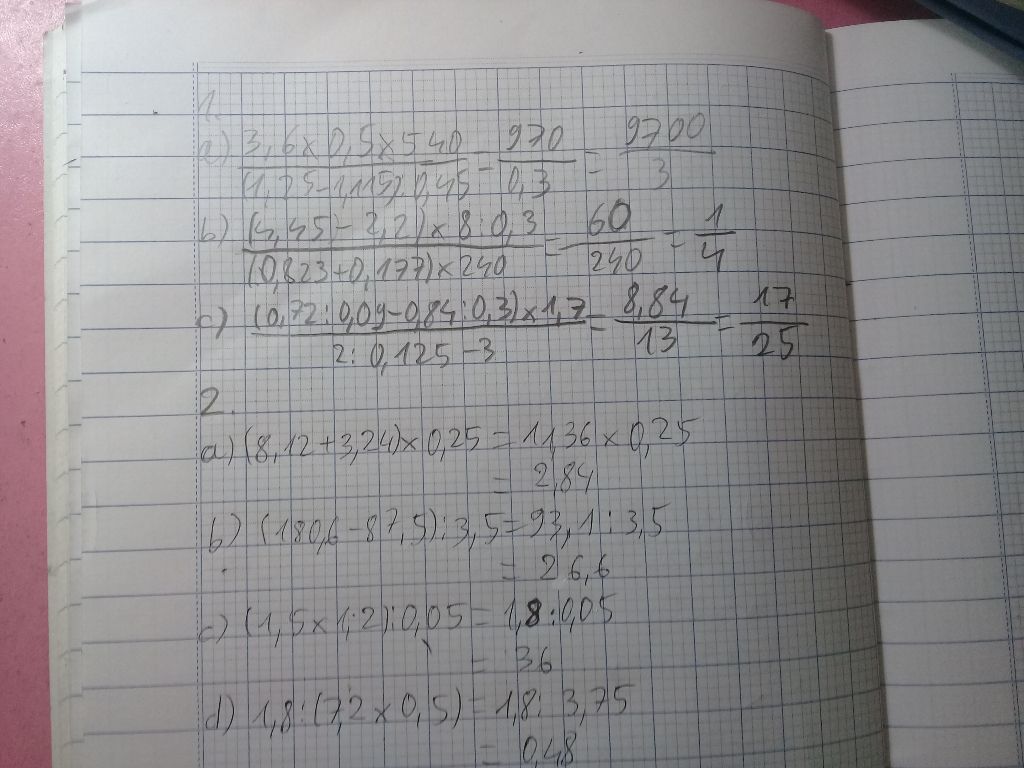 1.
a) 3,6 x 0,5 x 540 / (1,25 - 1,115) 0,45 = 970 / 0,3 = 9700 / 3
b) (4,45 - 2,2) x 8 : 0,3 / (0,823 + 0,177) x 240 = 60 / 240 = 1 / 4
c) (0,72 : 0,09 - 0,84 : 0,3) x 1,7 / 2 : 0,125 - 3 = 8,84 / 13 = 17 / 25
2.
a) (8,12 + 3,24) x 0,25 = 11,36 x 0,25
= 2,84
b) (180,6 - 87,5) : 3,5 = 93,1 : 3,5
= 26,6
c) (1,5 x 1,2) : 0,05 = 1,8 : 0,05
= 36
d) 1,8 : (7,2 x 0,5) = 1,8 : 3,75
= 0,48